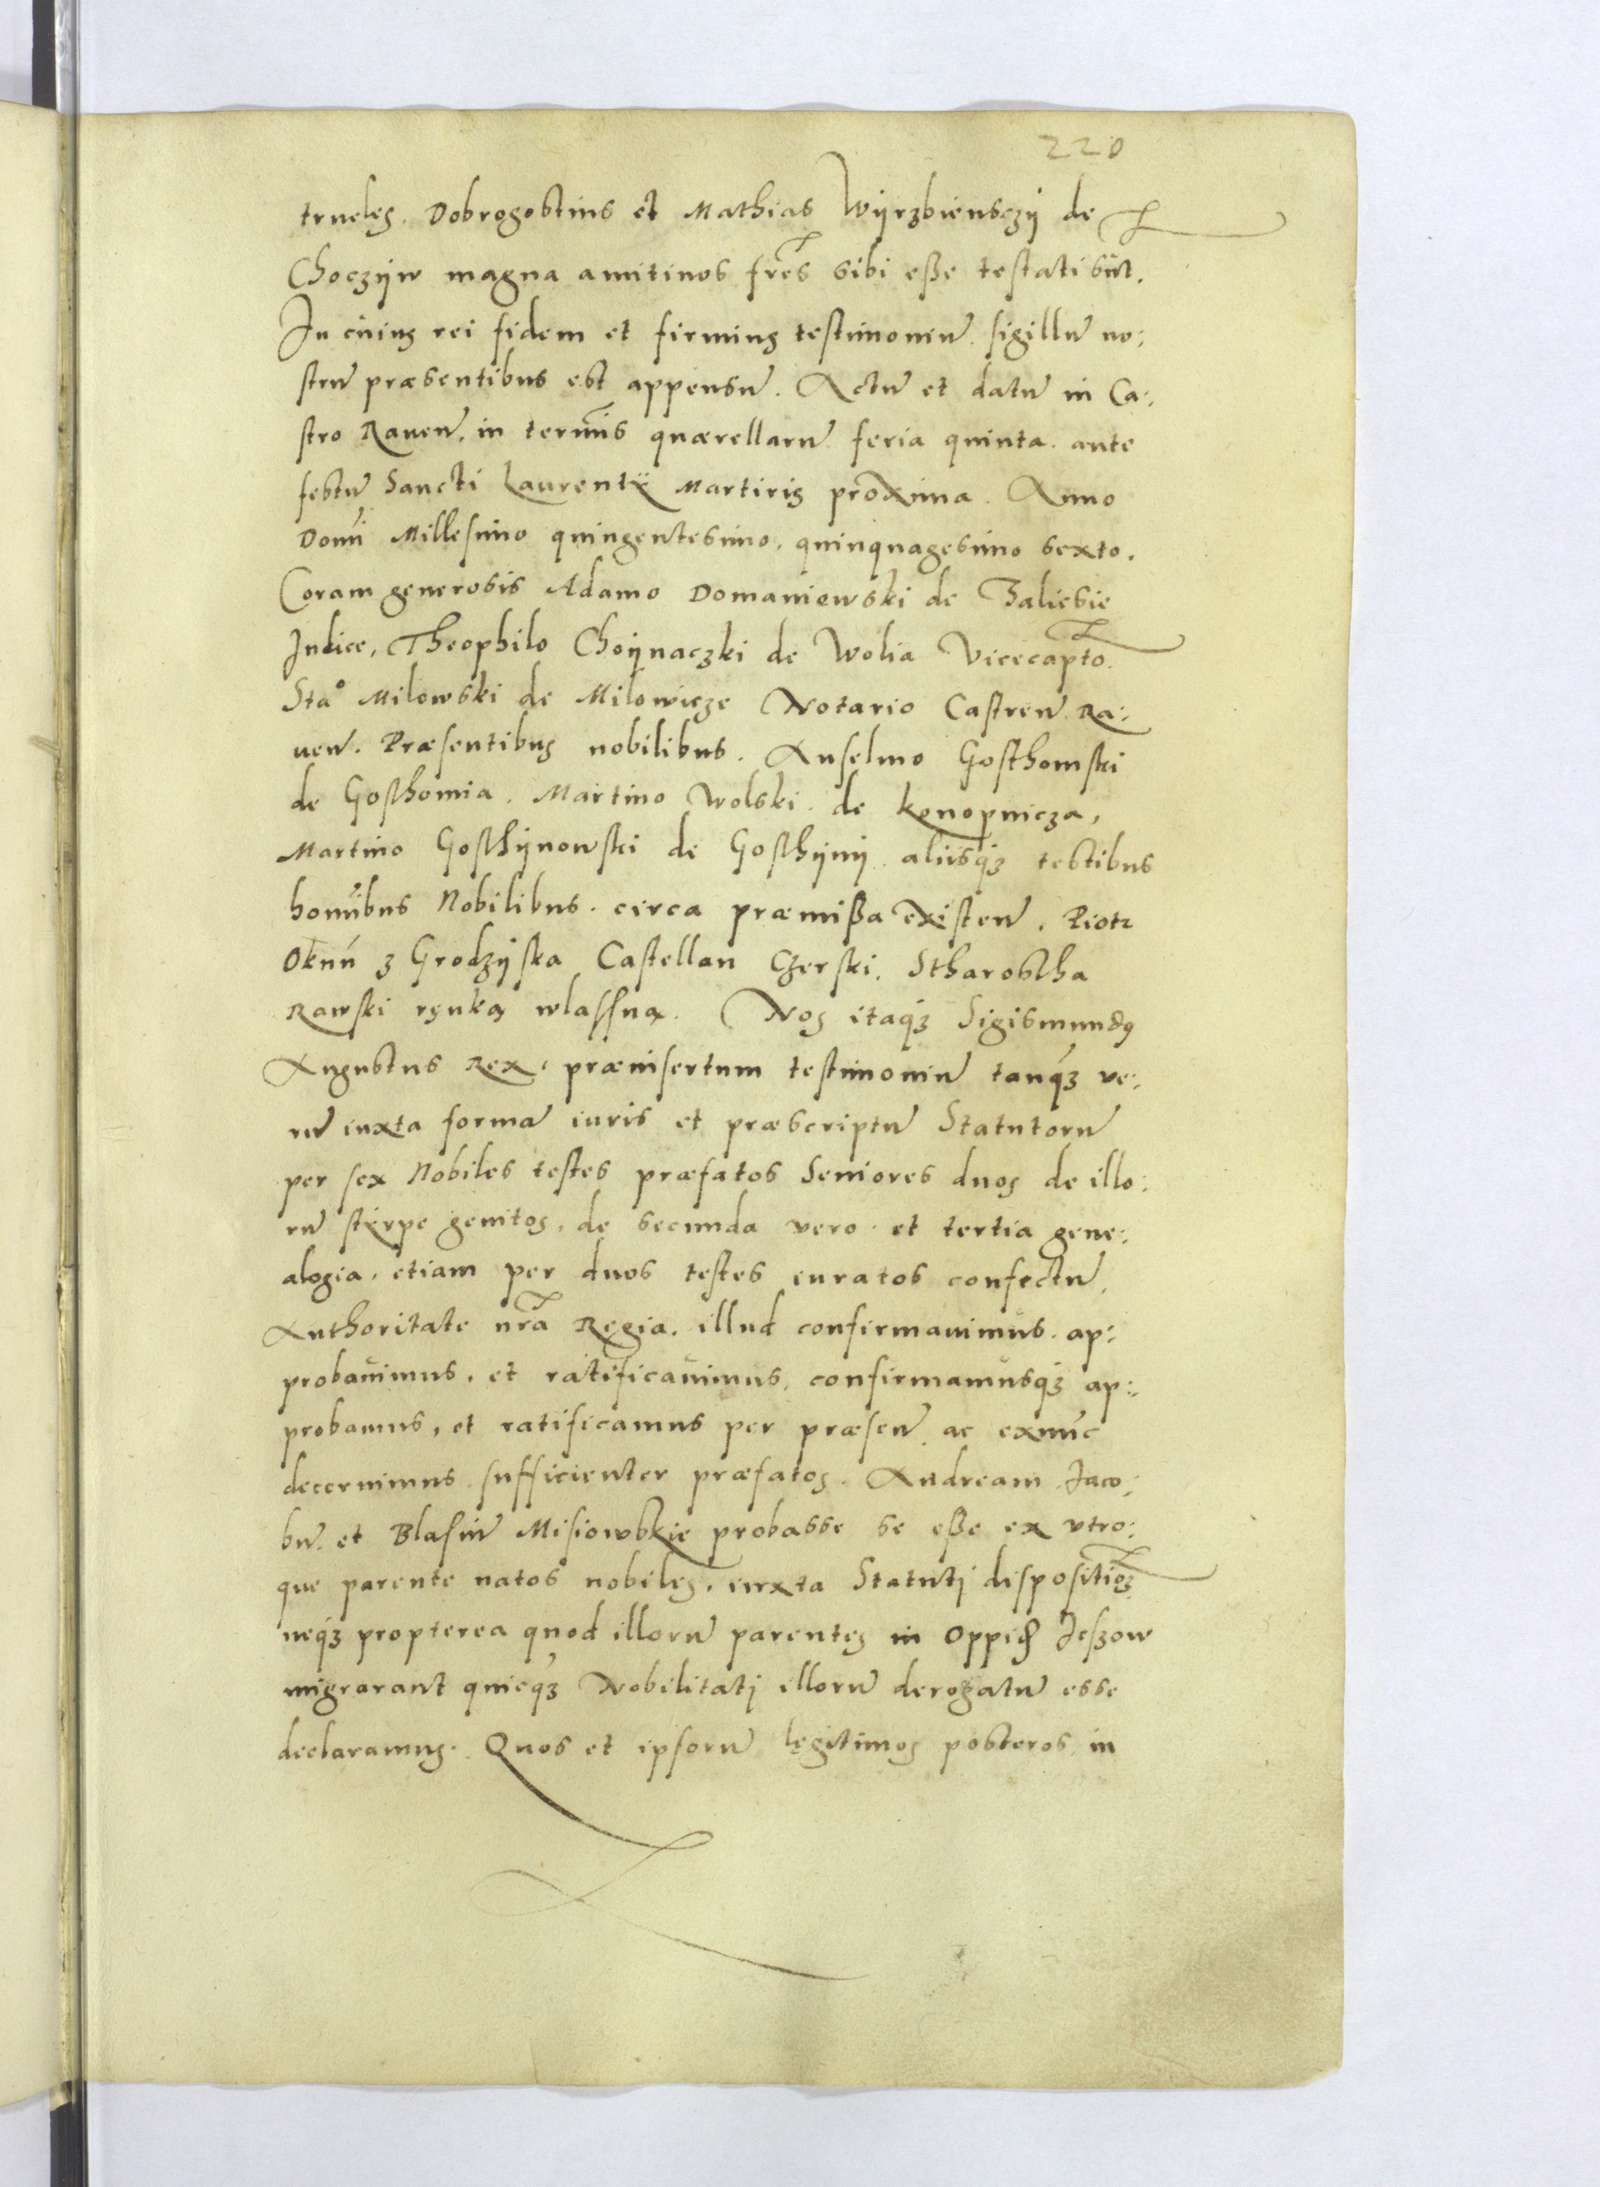 220
trueles. Dobrogostius et Mathias Wyrzbiensczy de
Choczyw magna amitinos fr̃es sibi esse testati sũt.
In cuius rei fidem et firmius testimoniũ sigillũ no:
strũ præsentibus est appensũ. Actũ et datũ in Ca:
stro Raueñ. in termĩs quærellarũ feria quinta ante
festũ Sancti Laurentÿ Martiris proxima. Anno
Domĩ Millesimo quingentesimo, quinquagesimo sexto.
Coram generosis Adamo Domaniewski de Zaliesie
Iudice, Theophilo Choynaczki de Wolia Vicecapto.
Sta° Milowski de Milowicze Notario Castreñ Ra:
ueñ. Præsentibus nobilibus. Anselmo Gosthomski
de Gosthomia. Martino Wolski de Konopnicza,
Martino Gosthynowski de Gosthyny aliisq₃ testibus
homĩbus Nobilibus circa præmissa existeñ. Piotr
Okuń z Grodzyska Castellan Czerski, Stharostha
Rawski ręnką wlassną. Nos itaq₃ Sigismundꝰ
Augustus Rex, præinsertum testimoniũ tanq̃₃ ve:
rũ iuxta formã iuris et præscriptũ Statutorũ
per sex Nobiles testes præfatos Seniores duos de illo:
rũ stirpe genitos, de secunda vero et tertia gene:
alogia, etiam per duos testes iuratos confectũ,
Authoritate nr̃a Regia, illud confirmauimus ap:
probauimus, et ratificauimus, confirmamusq₃ ap:
probamus, et ratificamus per præseñ ac exnũc
decernimus sufficienter præfatos Andream Iaco:
bũ et Blasiũ Misiowskie probasse se esse ex vtro:
que parente natos nobiles, iuxta Statuti dispositioẽ₃
neq₃ propterea quod illorũ parentes in Oppid Jeszow
migrarant quicq̃₃ Nobilitati illorũ derogatũ esse
declaramus. Quos et ipsorũ legitimos posteros in